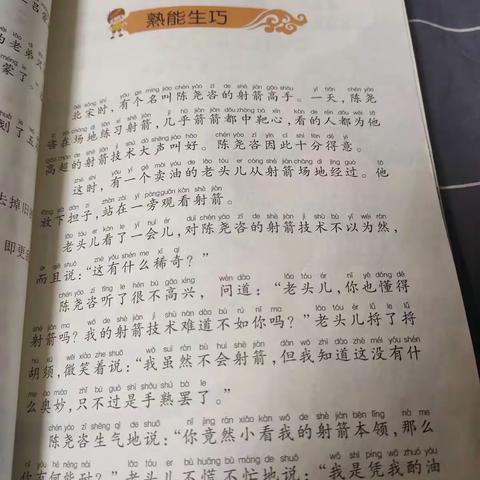 熟能生巧
北宋时，有个名叫陈尧咨的射箭高手。一天，陈尧
咨在场地练习射箭，几乎箭箭都中靶心，看的人都为他
高超的射箭技术大声叫好。陈尧咨因此十分得意。
这时，有一个卖油的老头儿从射箭场地经过。他
放下担子，站在一旁观看射箭。
老头儿看了一会儿，对陈尧咨的射箭技术不以为然，
而且说：“这有什么稀奇？”
陈尧咨听了很不高兴，问道：“老头儿，你也懂得
射箭吗？我的射箭技术难道不如你吗？”老头儿捋了捋
胡须，微笑着说：“我虽然不会射箭，但我知道这没有什
么奥妙，只不过是手熟罢了。”
陈尧咨生气地说：“你竟然小看我的射箭本领，那么
你有何能耐？”老头儿不慌不忙地说：“我是凭我酌油
的老弟
蒙了。
划了五
去掉旧
即更